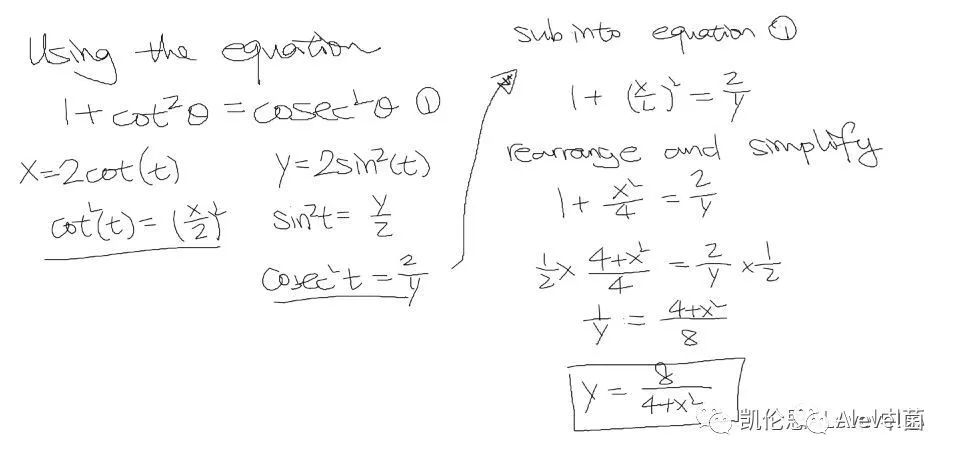 Using the equation
1 + cot²θ = cosec²θ ①
x = 2cot(t) y = 2sin²(t)
cot²(t) = (x/2)² sin²t = y/2
cosec²t = 2/y
sub into equation ①
1 + (x/2)² = 2/y
rearrange and simplify
1 + x²/4 = 2/y
1/2 × (4+x²)/4 = 2/y × 1/2
1/y = (4+x²)/8
y = 8/(4+x²)
凯伦